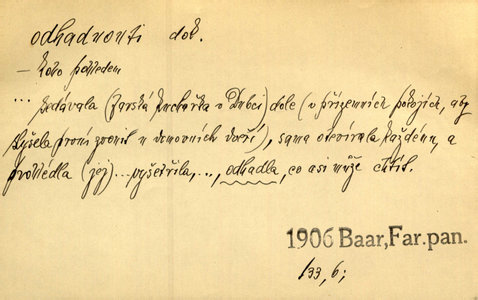 odhadnouti dok.
— koho pohledem
... sedávala (farská kuchařka v Dubci) dole (v přízemních pokojích, aby
slyšela první zvonit u domovních dveří), sama otevírala každému, a
prohlédla (jej)... vyšetřila, ..., odhadla, co asi může chtít.
1906 Baar, Far. pan.
133, 6;